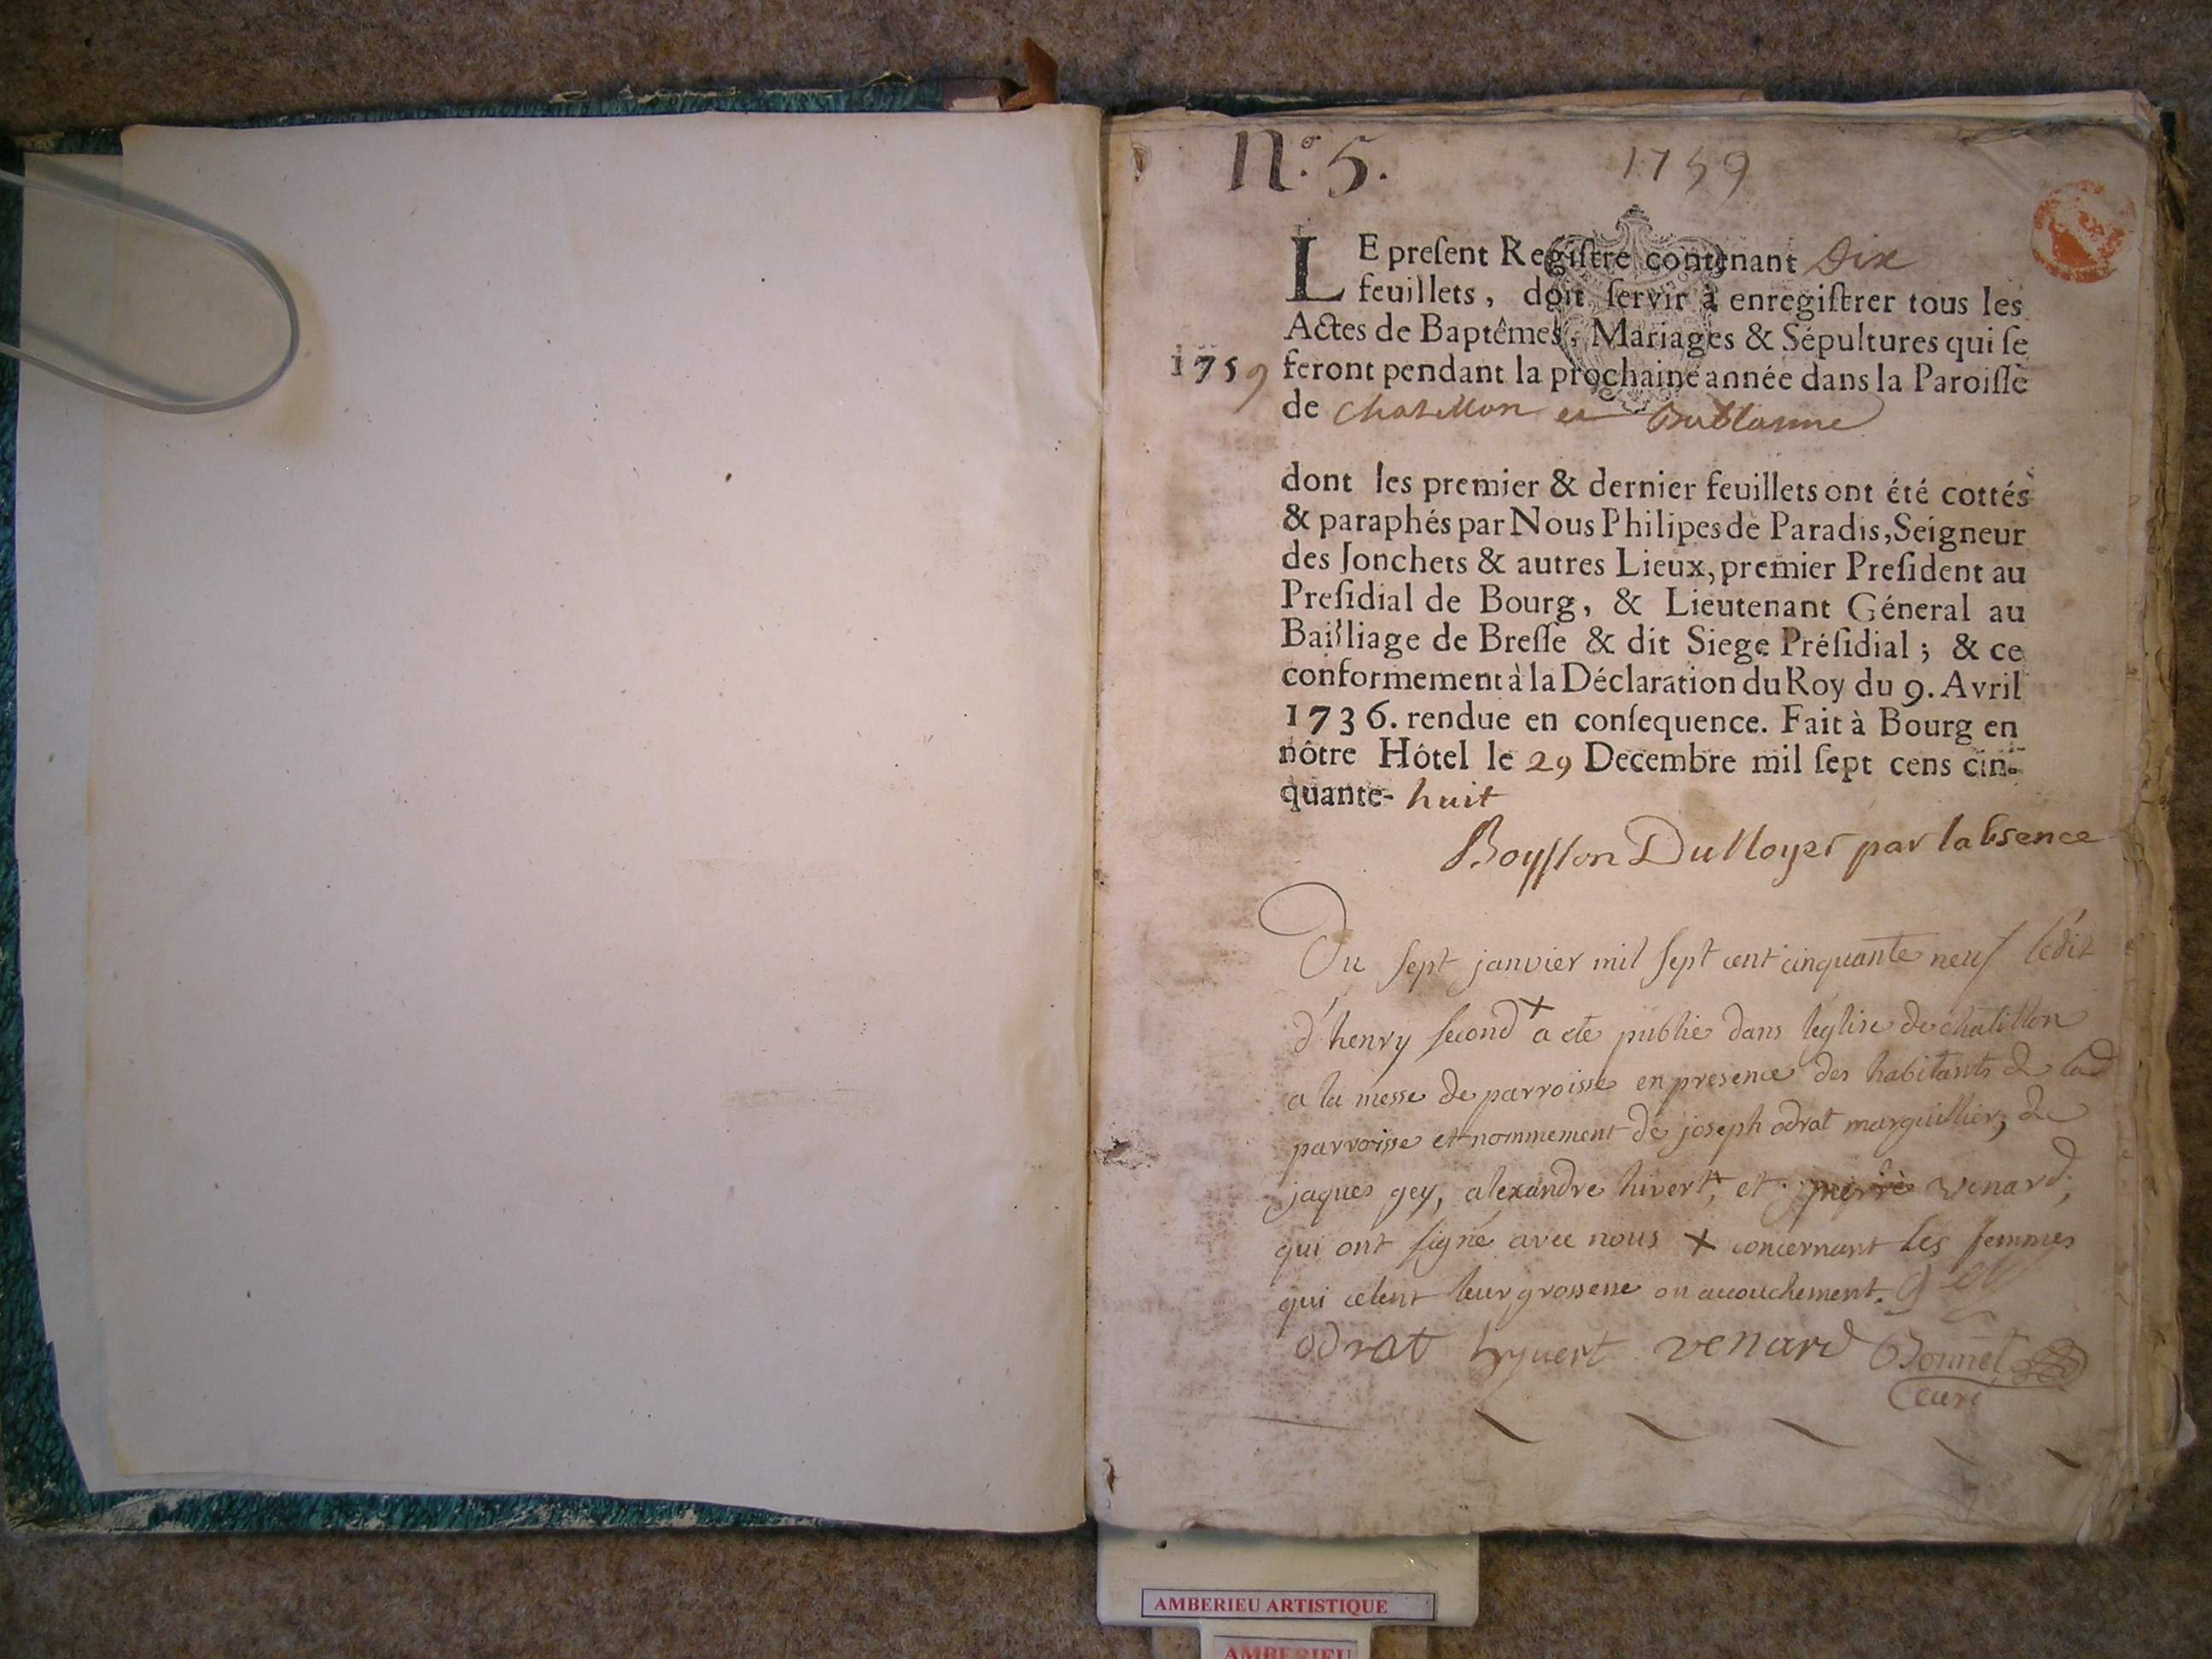 N.º 5. 1759
LE preſent Regiſtre contenant Dix
feuillets, doit ſervir à enregiſtrer tous les
Actes de Baptêmes, Mariages & Sépultures qui ſe
1759 feront pendant la prochaine année dans la Paroiſſe
de Chatillon
dont les premier & dernier feuillets ont été cottés
& paraphés par Nous Philipes de Paradis, Seigneur
des Jonchets & autres Lieux, premier Preſident au
Preſidial de Bourg, & Lieutenant Géneral au
Bailliage de Breſſe & dit Siege Préſidial ; & ce
conformement à la Déclaration du Roy du 9. Avril
1736. rendue en conſequence. Fait à Bourg en
nôtre Hôtel le 29 Decembre mil ſept cens cin-
quante- huit
par labsence
Du sept janvier mil sept cent cinquante neuf lédit
d'henry second + a ete publié dans léglise de chatillon
a la messe de parroisse en presence des habitants de lad
parroisse et nommement de joseph odrat marguillier, de
jaques gey, alexandre hivert, et pierre venard,
qui ont signé avec nous + concernant les femmes
qui celent leur grossesse ou accouchement.
odrat hyvert venard Bonnet
Curé
AMBERIEU ARTISTIQUE
AMBERIEU